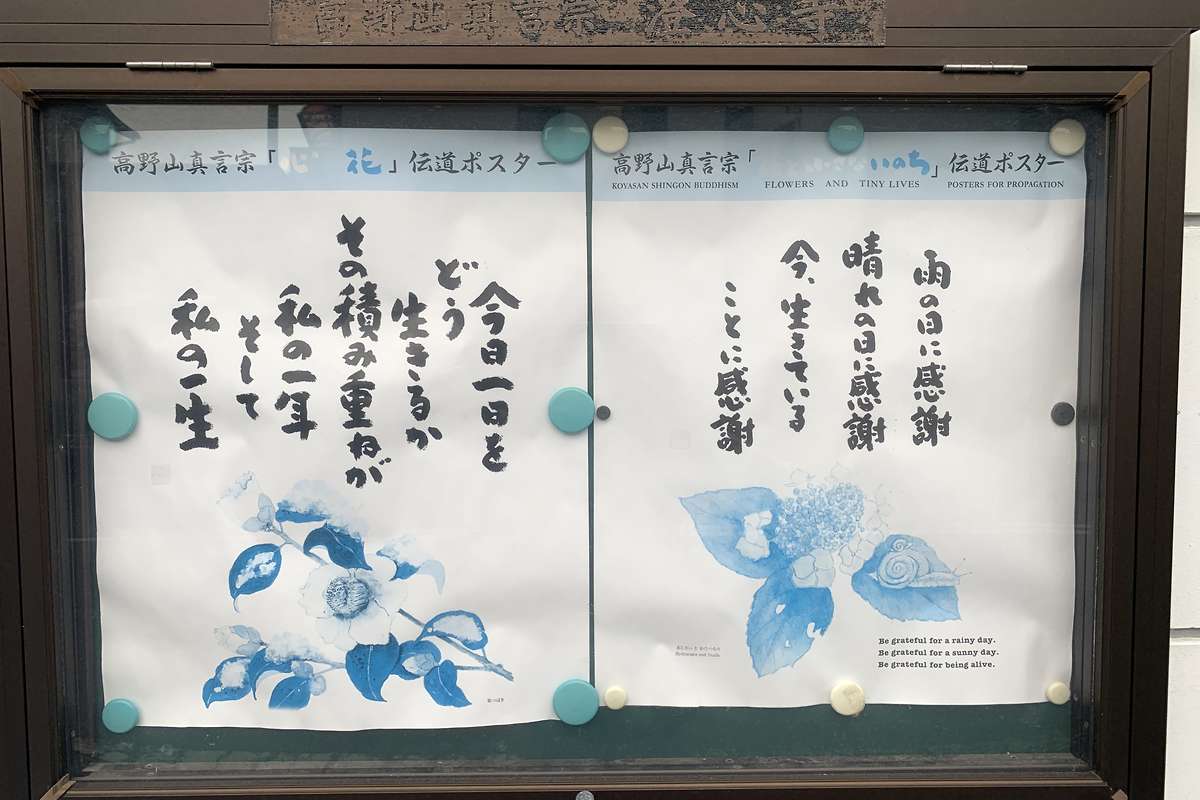 高野山真言宗 浄心寺
高野山真言宗「心 花」伝道ポスター
今日一日を
どう
生きるか
その積み重ねが
私の一年
そして
私の一生
高野山真言宗「 いのち」伝道ポスター
KOYASAN SHINGON BUDDHISM FLOWERS AND TINY LIVES POSTERS FOR PROPAGATION
雨の日に感謝
晴れの日に感謝
今、生きている
ことに感謝
Be grateful for a rainy day.
Be grateful for a sunny day.
Be grateful for being alive.